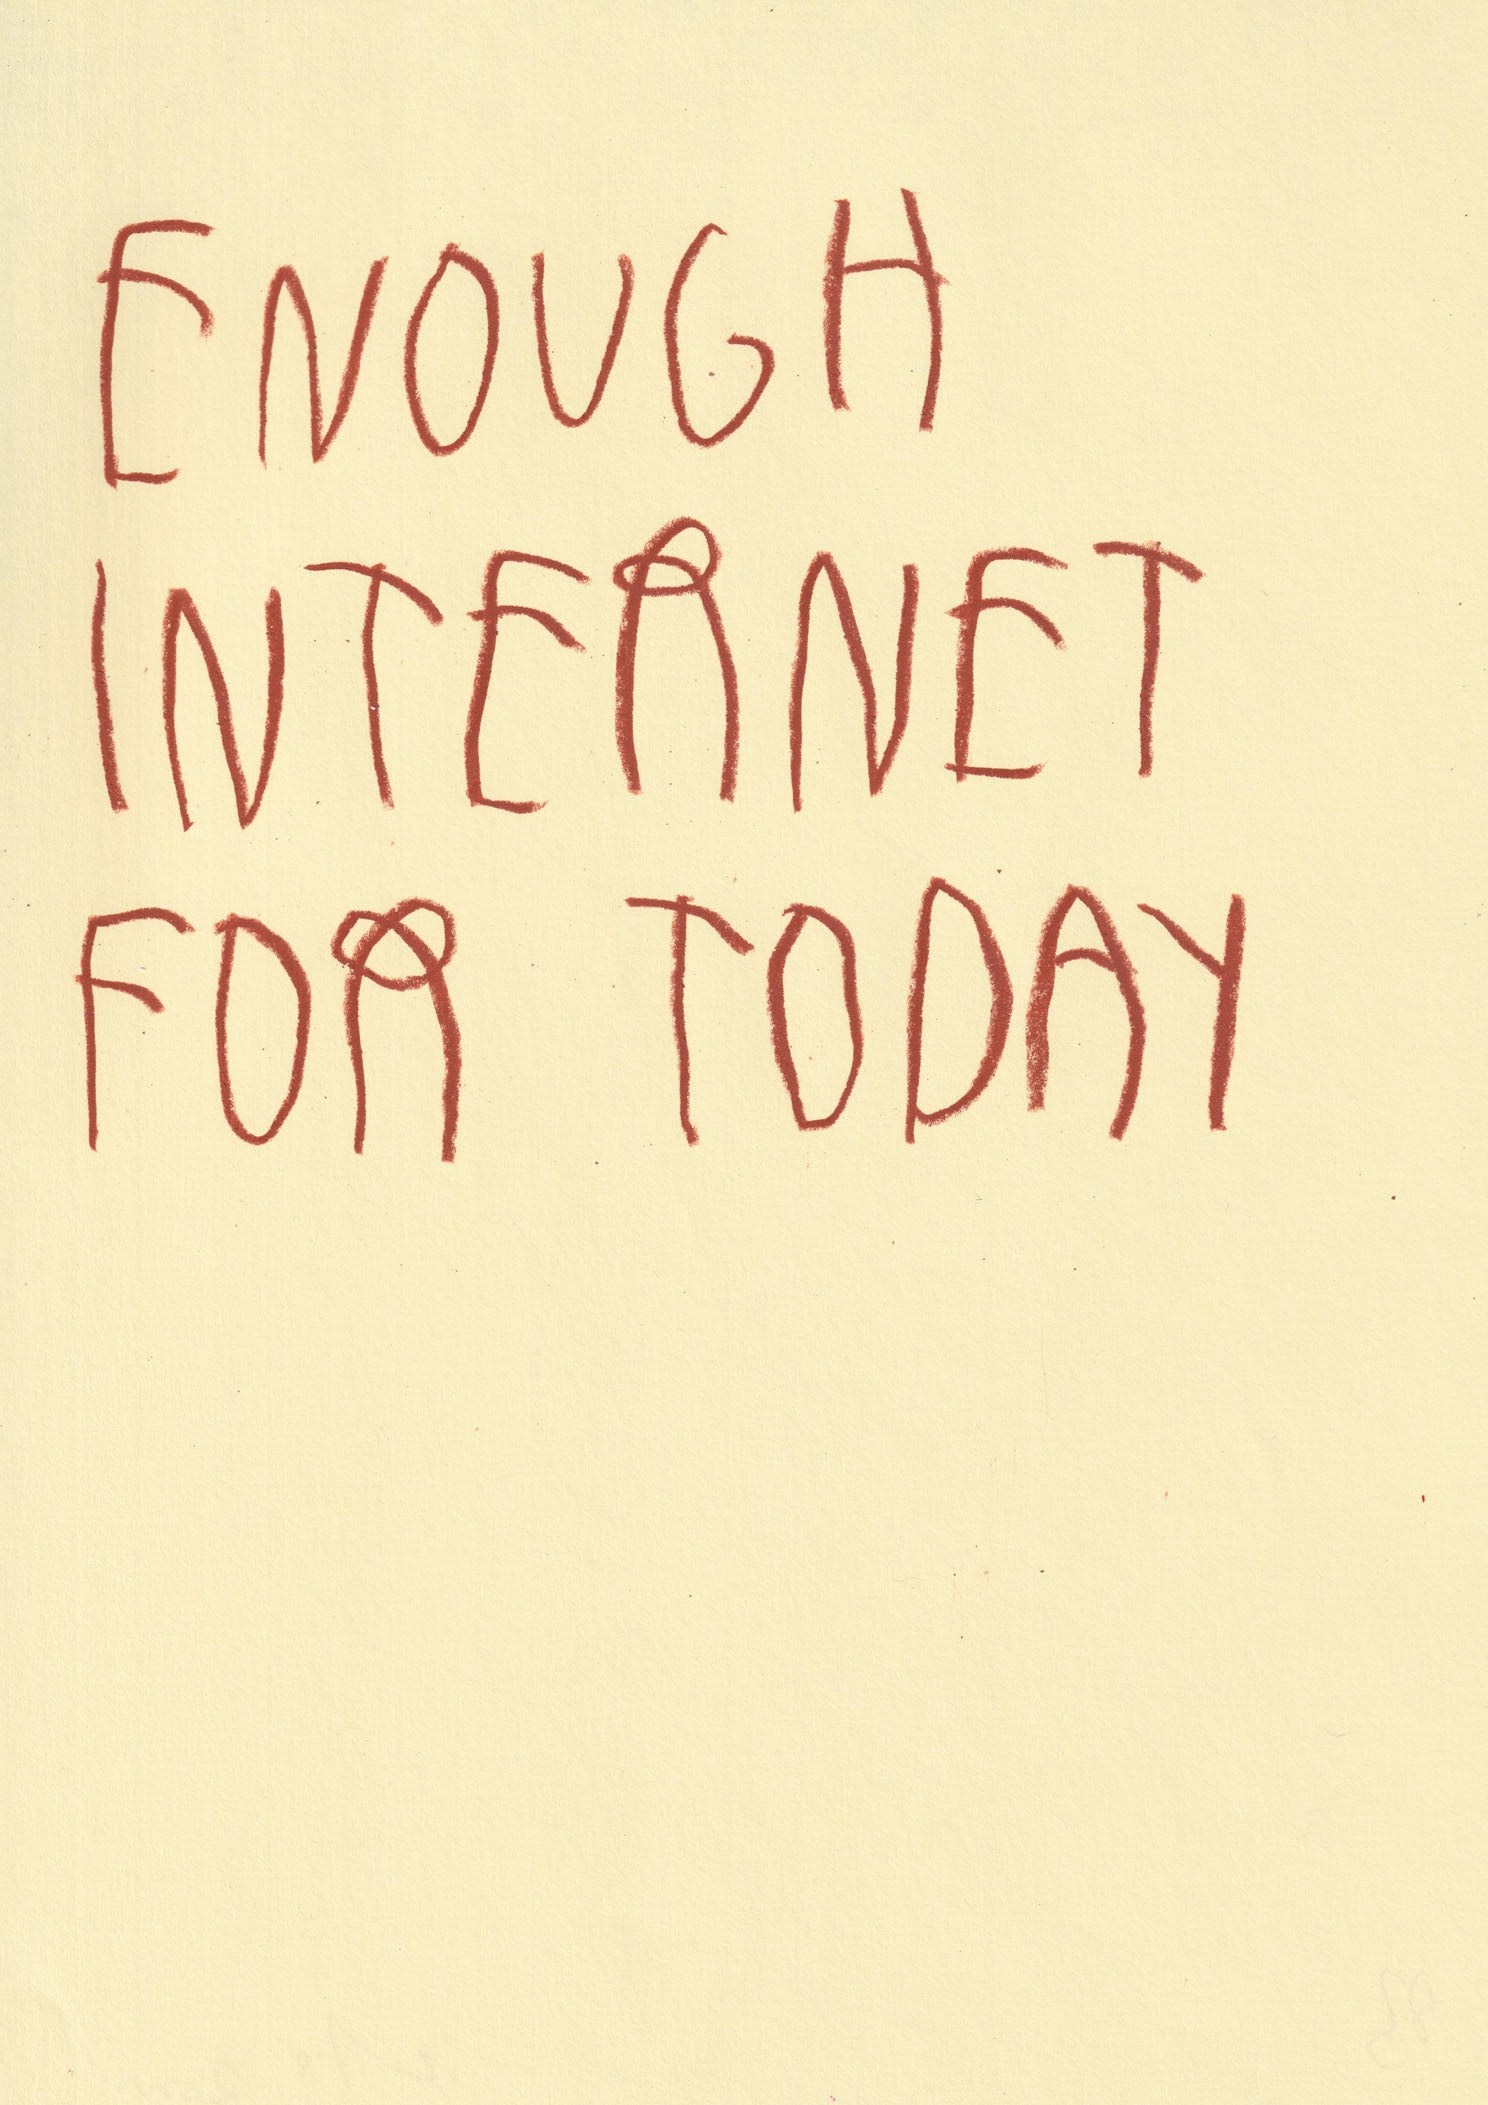 ENOUGH
INTERNET
FOR TODAY